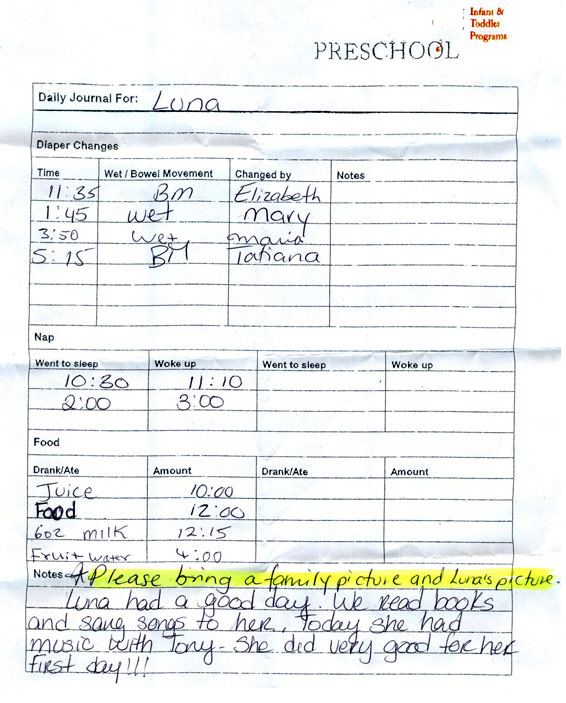 Infant &
Toddler
Programs
PRESCHOOL
Daily Journal For: Luna
Diaper Changes
Time Wet / Bowel Movement Changed by Notes
11:35 BM Elizabeth
1:45 wet Mary
3:50 wet maria
5:15 BM Tatiana
Nap
Went to sleep Woke up Went to sleep Woke up
10:30 11:10
2:00 3:00
Food
Drank/Ate Amount Drank/Ate Amount
Juice 10:00
Food 12:00
6oz milk 12:15
Fruit water 4:00
Notes Please bring a family picture and Luna's picture.
Luna had a good day. We read books
and sang songs to her. Today she had
music with Tony- She did very good for her
first day!!!